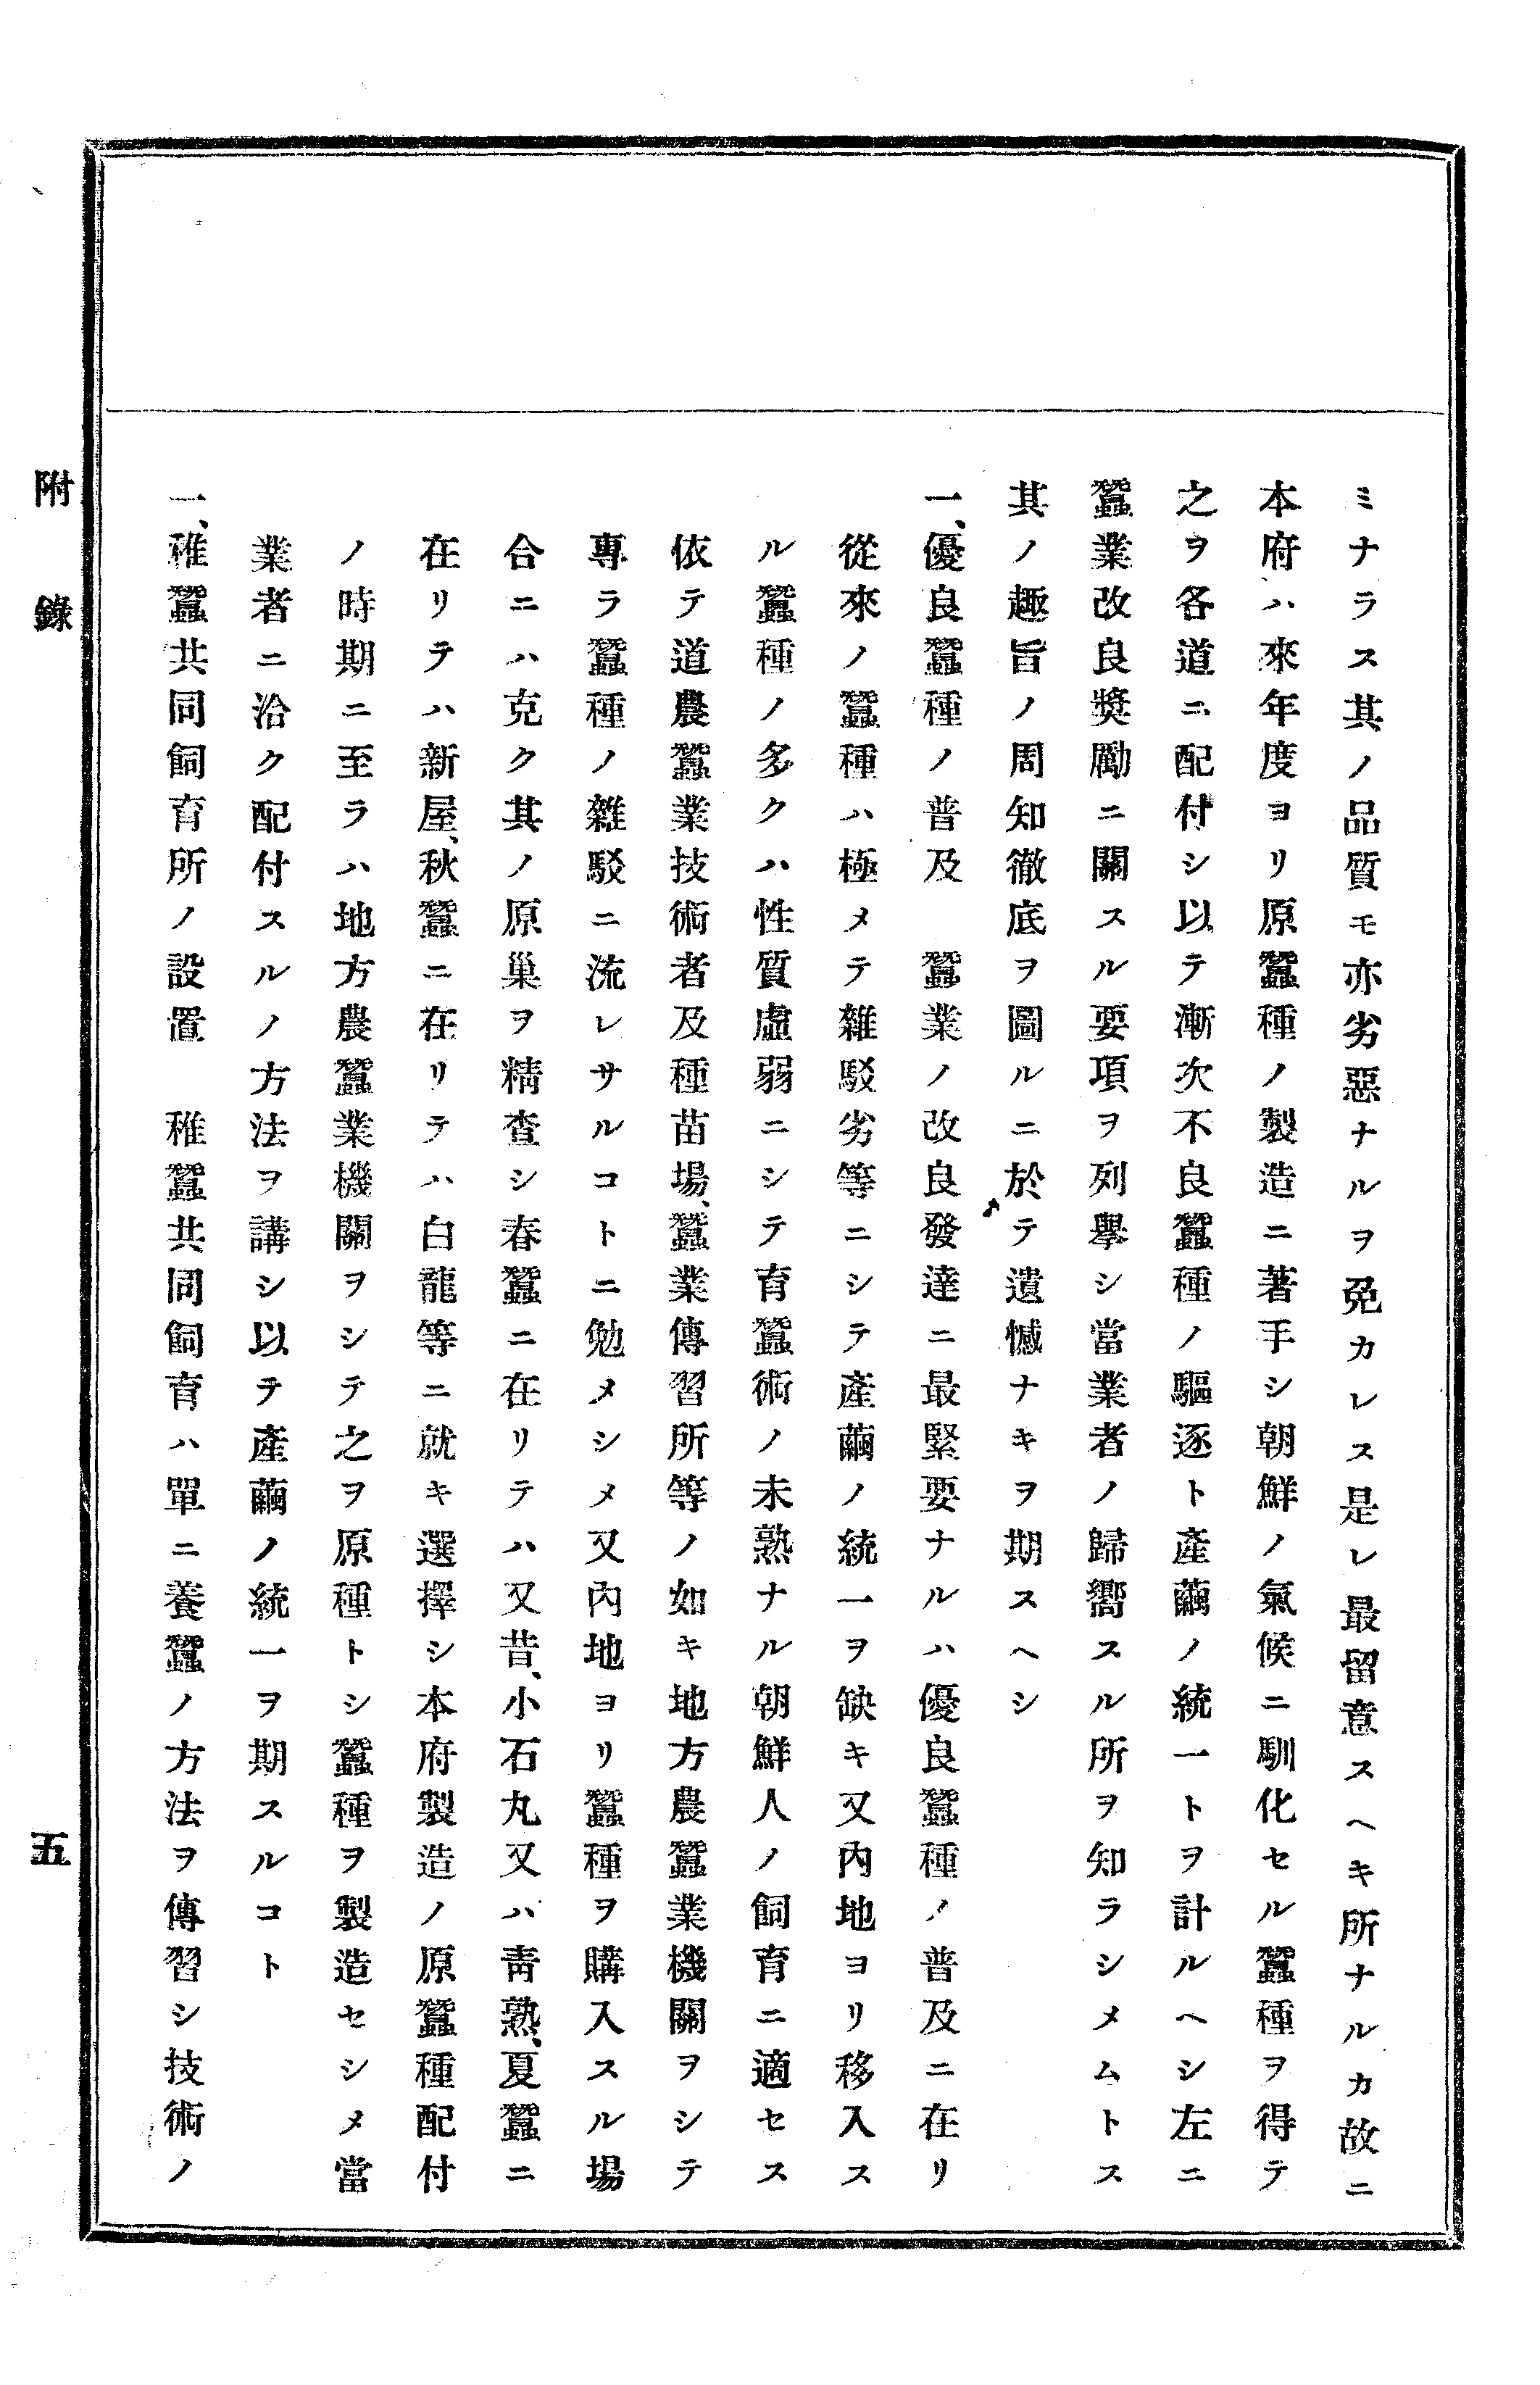 ミナラス其ノ品質モ亦劣惡ナルヲ免カレス是レ最留意スヘキ所ナルカ故ニ
本府ハ來年度ヨリ原蠶種ノ製造ニ著手シ朝鮮ノ氣候ニ馴化セル蠶種ヲ得テ
之ヲ各道ニ配付シ以テ漸次不良蠶種ノ驅逐ト產繭ノ統一トヲ計ルヘシ左ニ
蠶業改良奬勵ニ關スル要項ヲ列擧シ當業者ノ歸嚮スル所ヲ知ラシメムトス
其ノ趣旨ノ周知徹底ヲ圖ルニ於テ遺憾ナキヲ期スヘシ
一、優良蠶種ノ普及　蠶業ノ改良發達ニ最緊要ナルハ優良蠶種ノ普及ニ在リ
從來ノ蠶種ハ極メテ雜駁劣等ニシテ產繭ノ統一ヲ缺キ又內地ヨリ移入ス
ル蠶種ノ多クハ性質虛弱ニシテ育蠶術ノ未熟ナル朝鮮人ノ飼育ニ適セス
依テ道農蠶業技術者及種苗場、蠶業傳習所等ノ如キ地方農蠶業機關ヲシテ
專ラ蠶種ノ雜駁ニ流レサルコトニ勉メシメ又內地ヨリ蠶種ヲ購入スル場
合ニハ克ク其ノ原巢ヲ精査シ春蠶ニ在リテハ又昔、小石丸又ハ靑熟、夏蠶ニ
在リテハ新屋、秋蠶ニ在リテハ白龍等ニ就キ選擇シ本府製造ノ原蠶種配付
ノ時期ニ至ラハ地方農蠶業機關ヲシテ之ヲ原種トシ蠶種ヲ製造セシメ當
業者ニ洽ク配付スルノ方法ヲ講シ以テ產繭ノ統一ヲ期スルコト
一、稚蠶共同飼育所ノ設置　稚蠶共同飼育ハ單ニ養蠶ノ方法ヲ傳習シ技術ノ
附錄
五